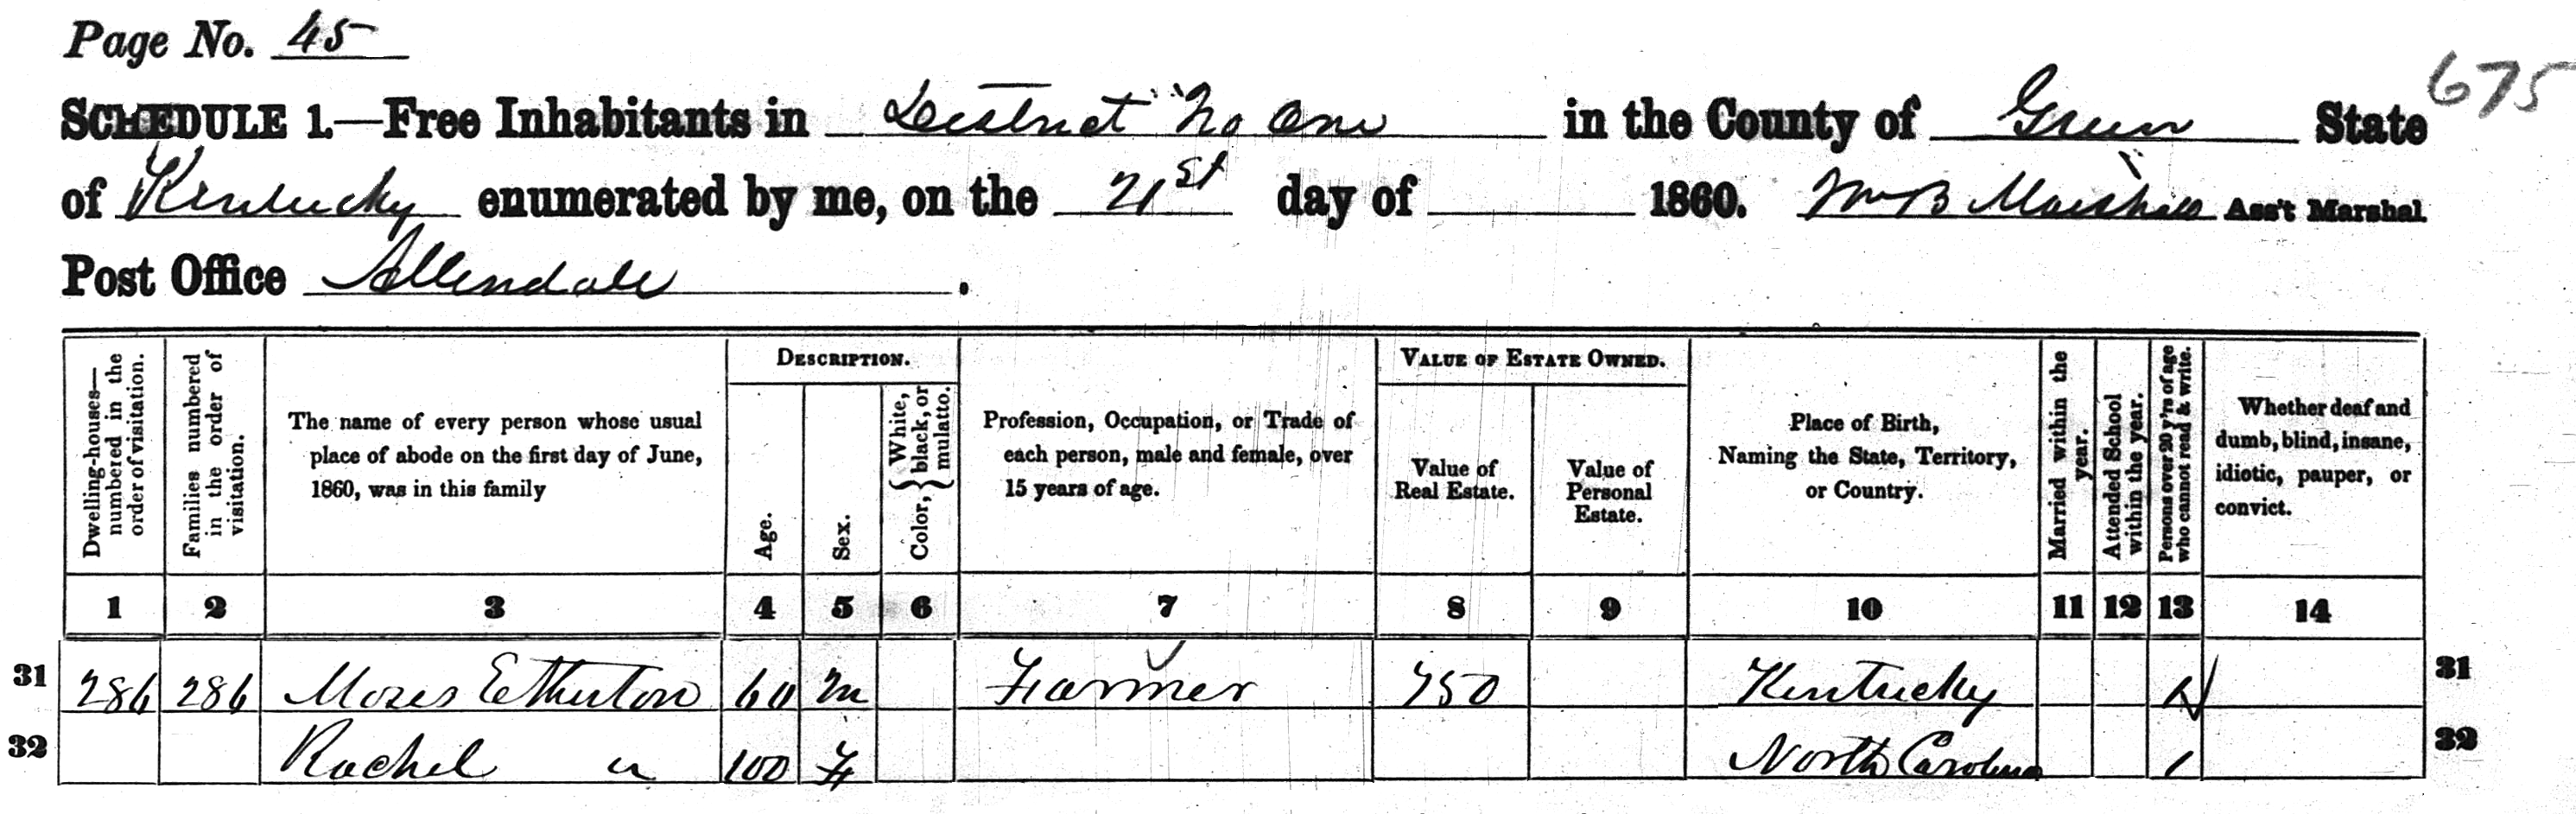 Page No. 45
675
SCHEDULE 1.—Free Inhabitants in District "No One in the County of Green State
of Kentucky enumerated by me, on the 21st day of 1860. Wm B Marshall Ass't Marshal.
Post Office Allendale.
Dwelling-houses—numbered in the order of visitation.
Families numbered in the order of visitation.
The name of every person whose usual
place of abode on the first day of June,
1860, was in this family
DESCRIPTION.
Age.
Sex.
Color, { White, black, or mulatto.
Profession, Occupation, or Trade of
each person, male and female, over
15 years of age.
VALUE OF ESTATE OWNED.
Value of
Real Estate.
Value of
Personal
Estate.
Place of Birth,
Naming the State, Territory,
or Country.
Married within the year.
Attended School within the year.
Persons over 20 y'rs of age who cannot read & write.
Whether deaf and
dumb, blind, insane,
idiotic, pauper, or
convict.
1 2 3 4 5 6 7 8 9 10 11 12 13 14
31 286 286 Moses Etherton 60 m Farmer 750 Kentucky 31
32 Rachel " 100 F North Carolina 1 32